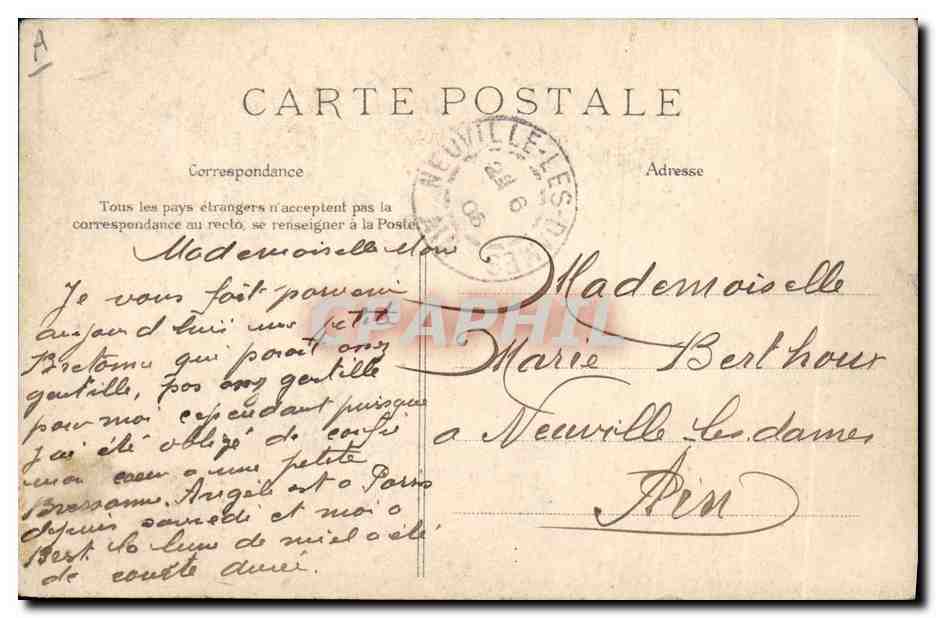 A
CARTE POSTALE
Correspondance
Adresse
Tous les pays étrangers n'acceptent pas la
correspondance au recto, se renseigner à la Poste.
NEUVILLE-LES-DAMES
6
06
CPAPHIL
Mademoiselle
Je vous fait parvenir
aujourd'hui une petite
Bretonne qui parait assez
gentille, pas assez gentille
pour moi cependant puisque
j'ai été obligé de confié
mon coeur a une petite
Bressanne. Angèle est a Paris
depuis samedi et moi a
Brest. la lune de miel a été
de courte durée.
Mademoiselle
Marie Berthoux
a Neuville les dames
Ain